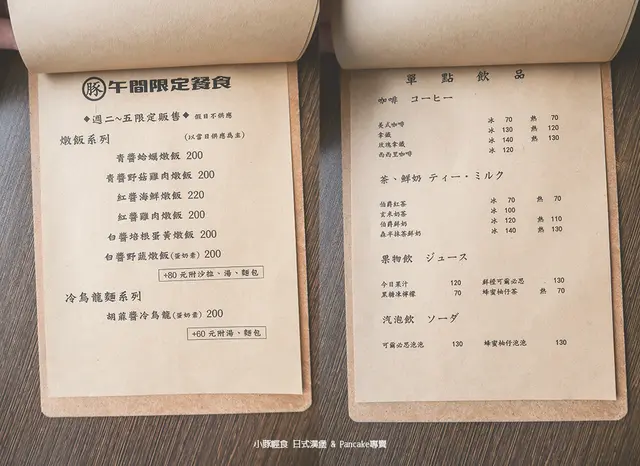 豚 午間限定餐食
◆週二~五限定販售◆ 假日不供應
燉飯系列 (以當日供應為主)
青醬蛤蠣燉飯 200
青醬野菇雞肉燉飯 200
紅醬海鮮燉飯 220
紅醬雞肉燉飯 200
白醬培根蛋黃燉飯 200
白醬野蔬燉飯(蛋奶素) 200
+80元附沙拉、湯、麵包
冷烏龍麵系列
胡蔴醬冷烏龍(蛋奶素) 200
+60元附湯、麵包
單點飲品
咖啡 コーヒー
美式咖啡 冰 70 熱 70
拿鐵 冰 130 熱 120
玫瑰拿鐵 冰 140 熱 130
西西里咖啡 冰 120
茶、鮮奶 ティー・ミルク
伯爵紅茶 冰 70 熱 70
玄米奶茶 冰 100
伯爵鮮奶 冰 120 熱 110
森半抹茶鮮奶 冰 140 熱 130
果物飲 ジュース
今日果汁 120 鮮橙可爾必思 130
黑糖冰檸檬 70 蜂蜜柚仔茶 熱 70
汽泡飲 ソーダ
可爾必思泡泡 130 蜂蜜柚仔泡泡 130
小豚輕食 日式漢堡 & Pancake專賣